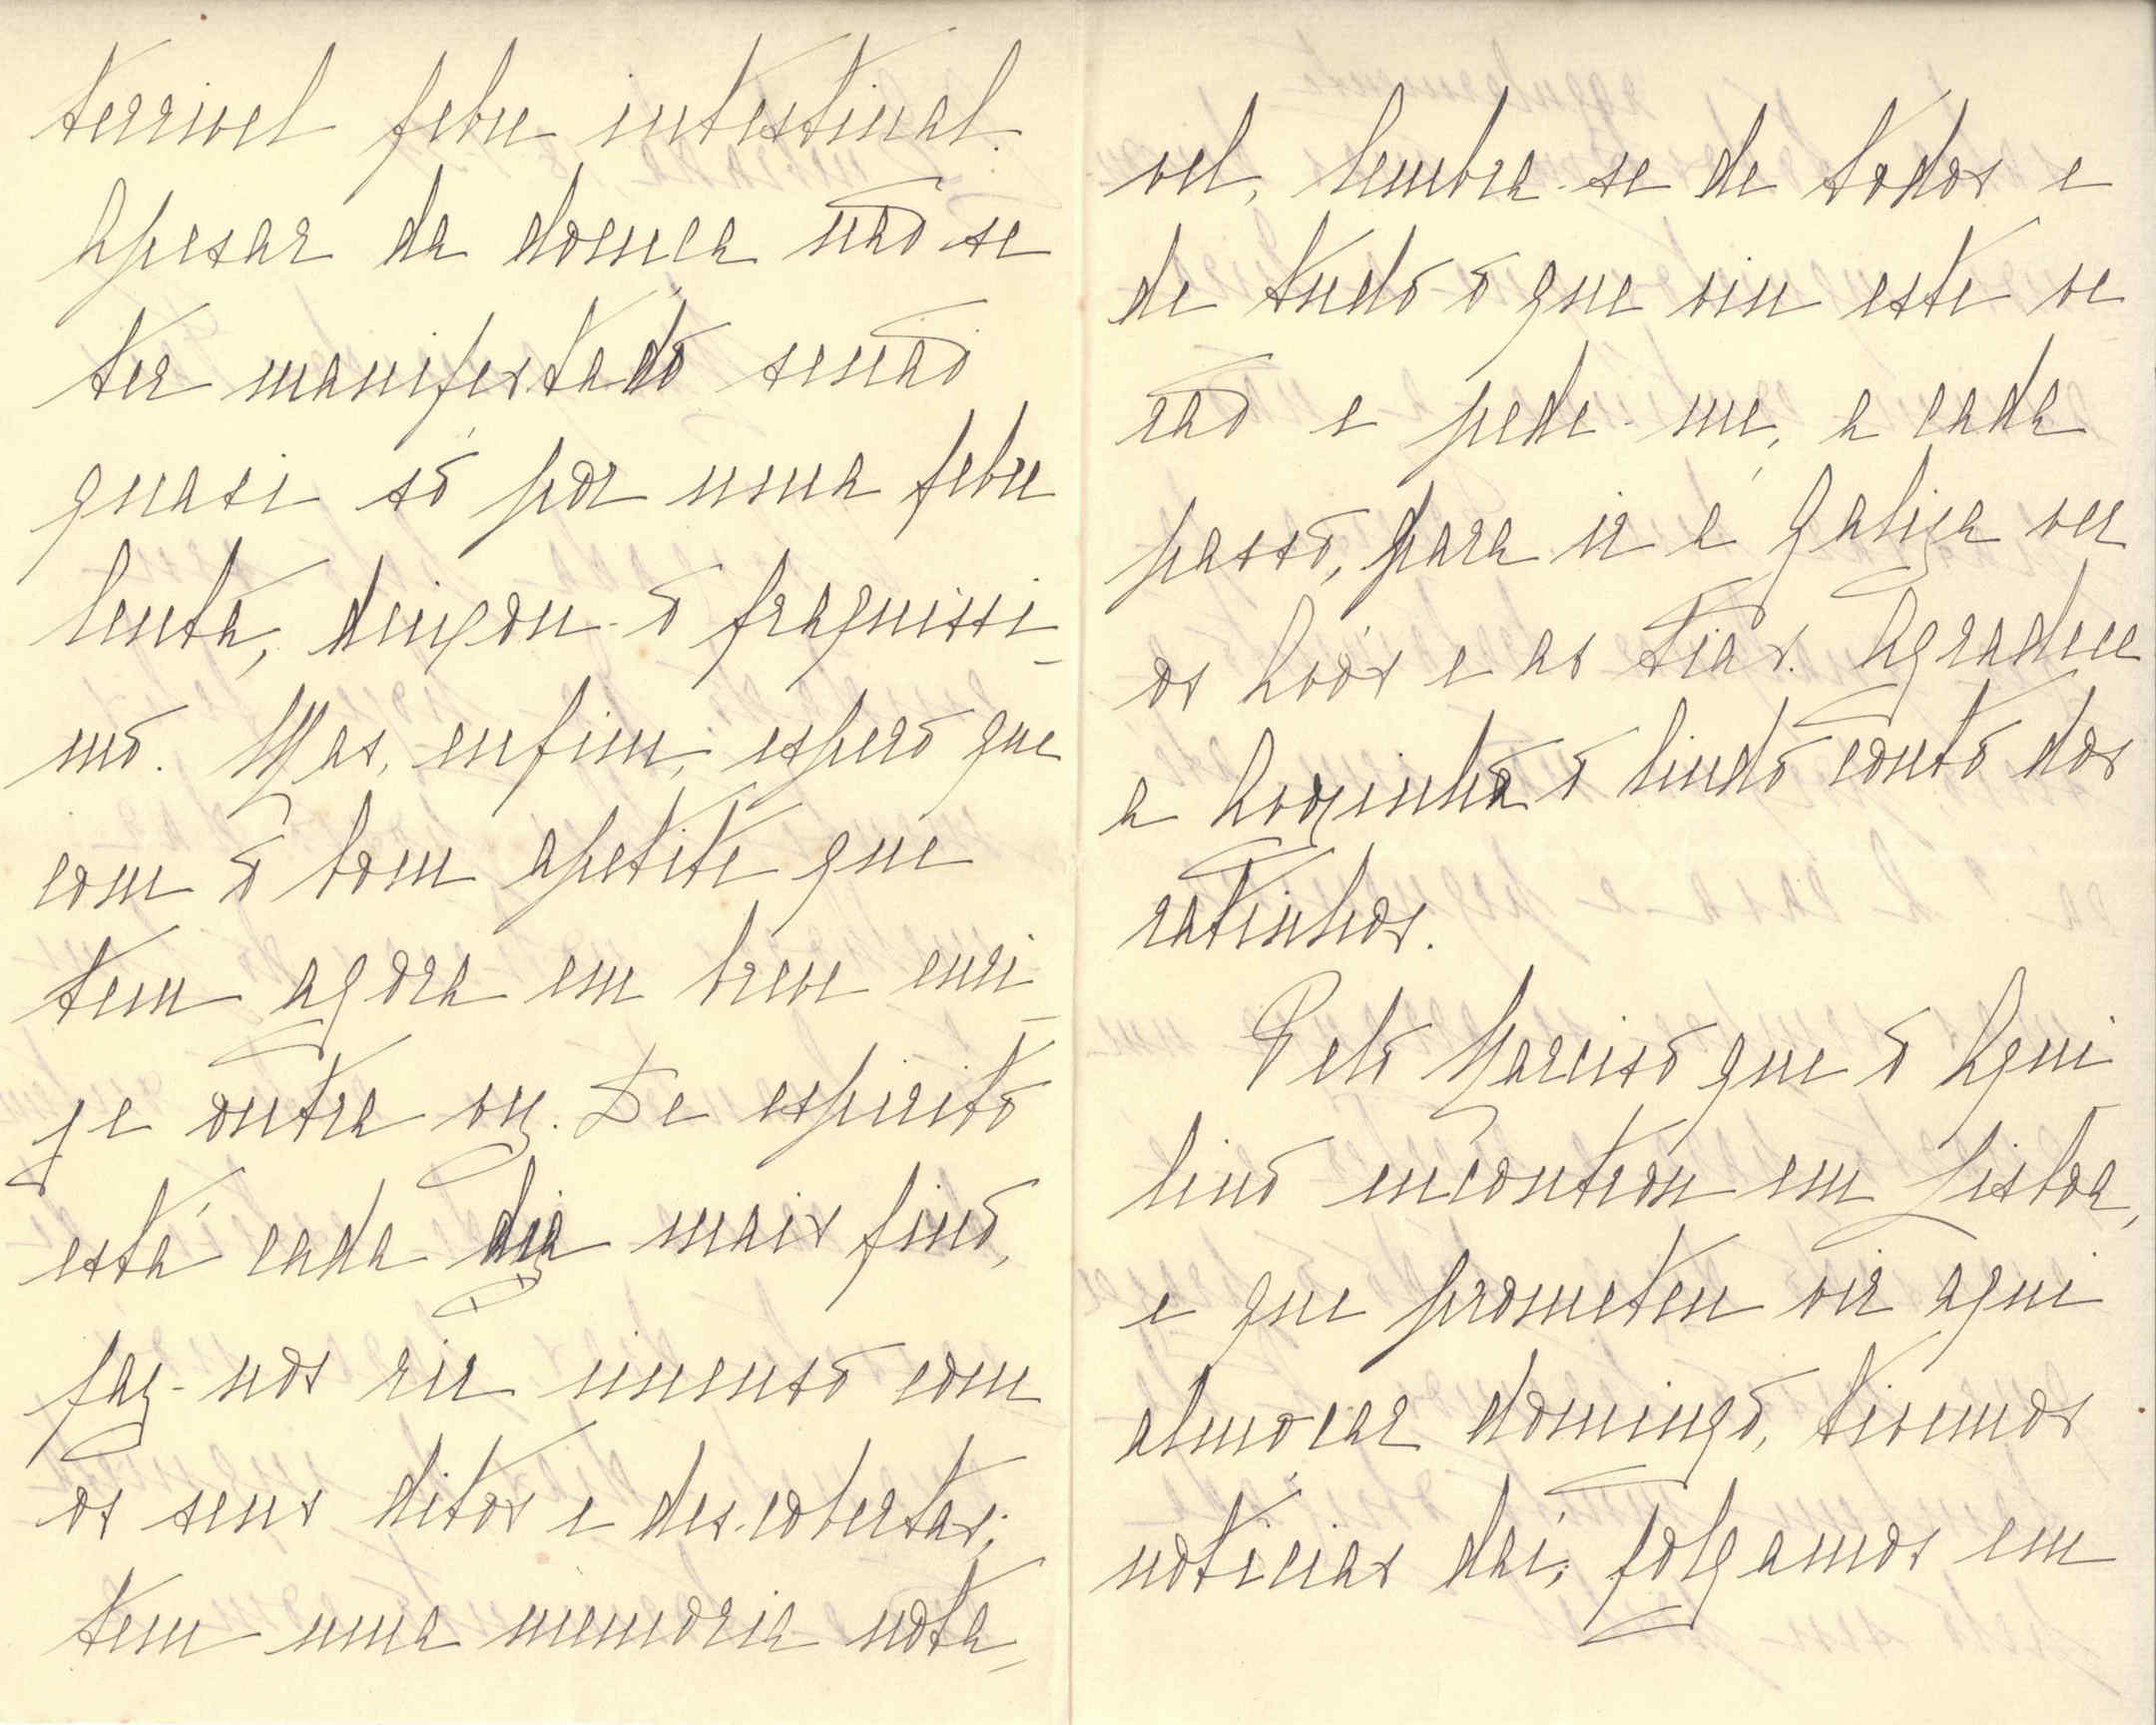 terrivel febre intestinal.
Apesar da doença não se
ter manifestado senão
quasi só por uma febre
lenta, deixou-o fraquissi-
mo. Mas, enfim, espero que
com o bom apetite que
tem agora em breve enri-
ge outra vez. De espirito
está cada dia mais fino,
faz-nos rir imenso com
os seus ditos e descobertas;
tem uma memoria nota-
vel, lembra-se de todos e
de tudo o que viu este ve
rão e pede-me, a cada
passo, para ir á Galiza ver
os Avós e as tias. Agradece
a Avózinha o lindo conto dos
ratinhos.
Pelo Narciso que o Aqui
lino encontrou em Lisboa,
e que prometeu vir aqui
almoçar domingo, tivemos
noticias daí; folgamos em